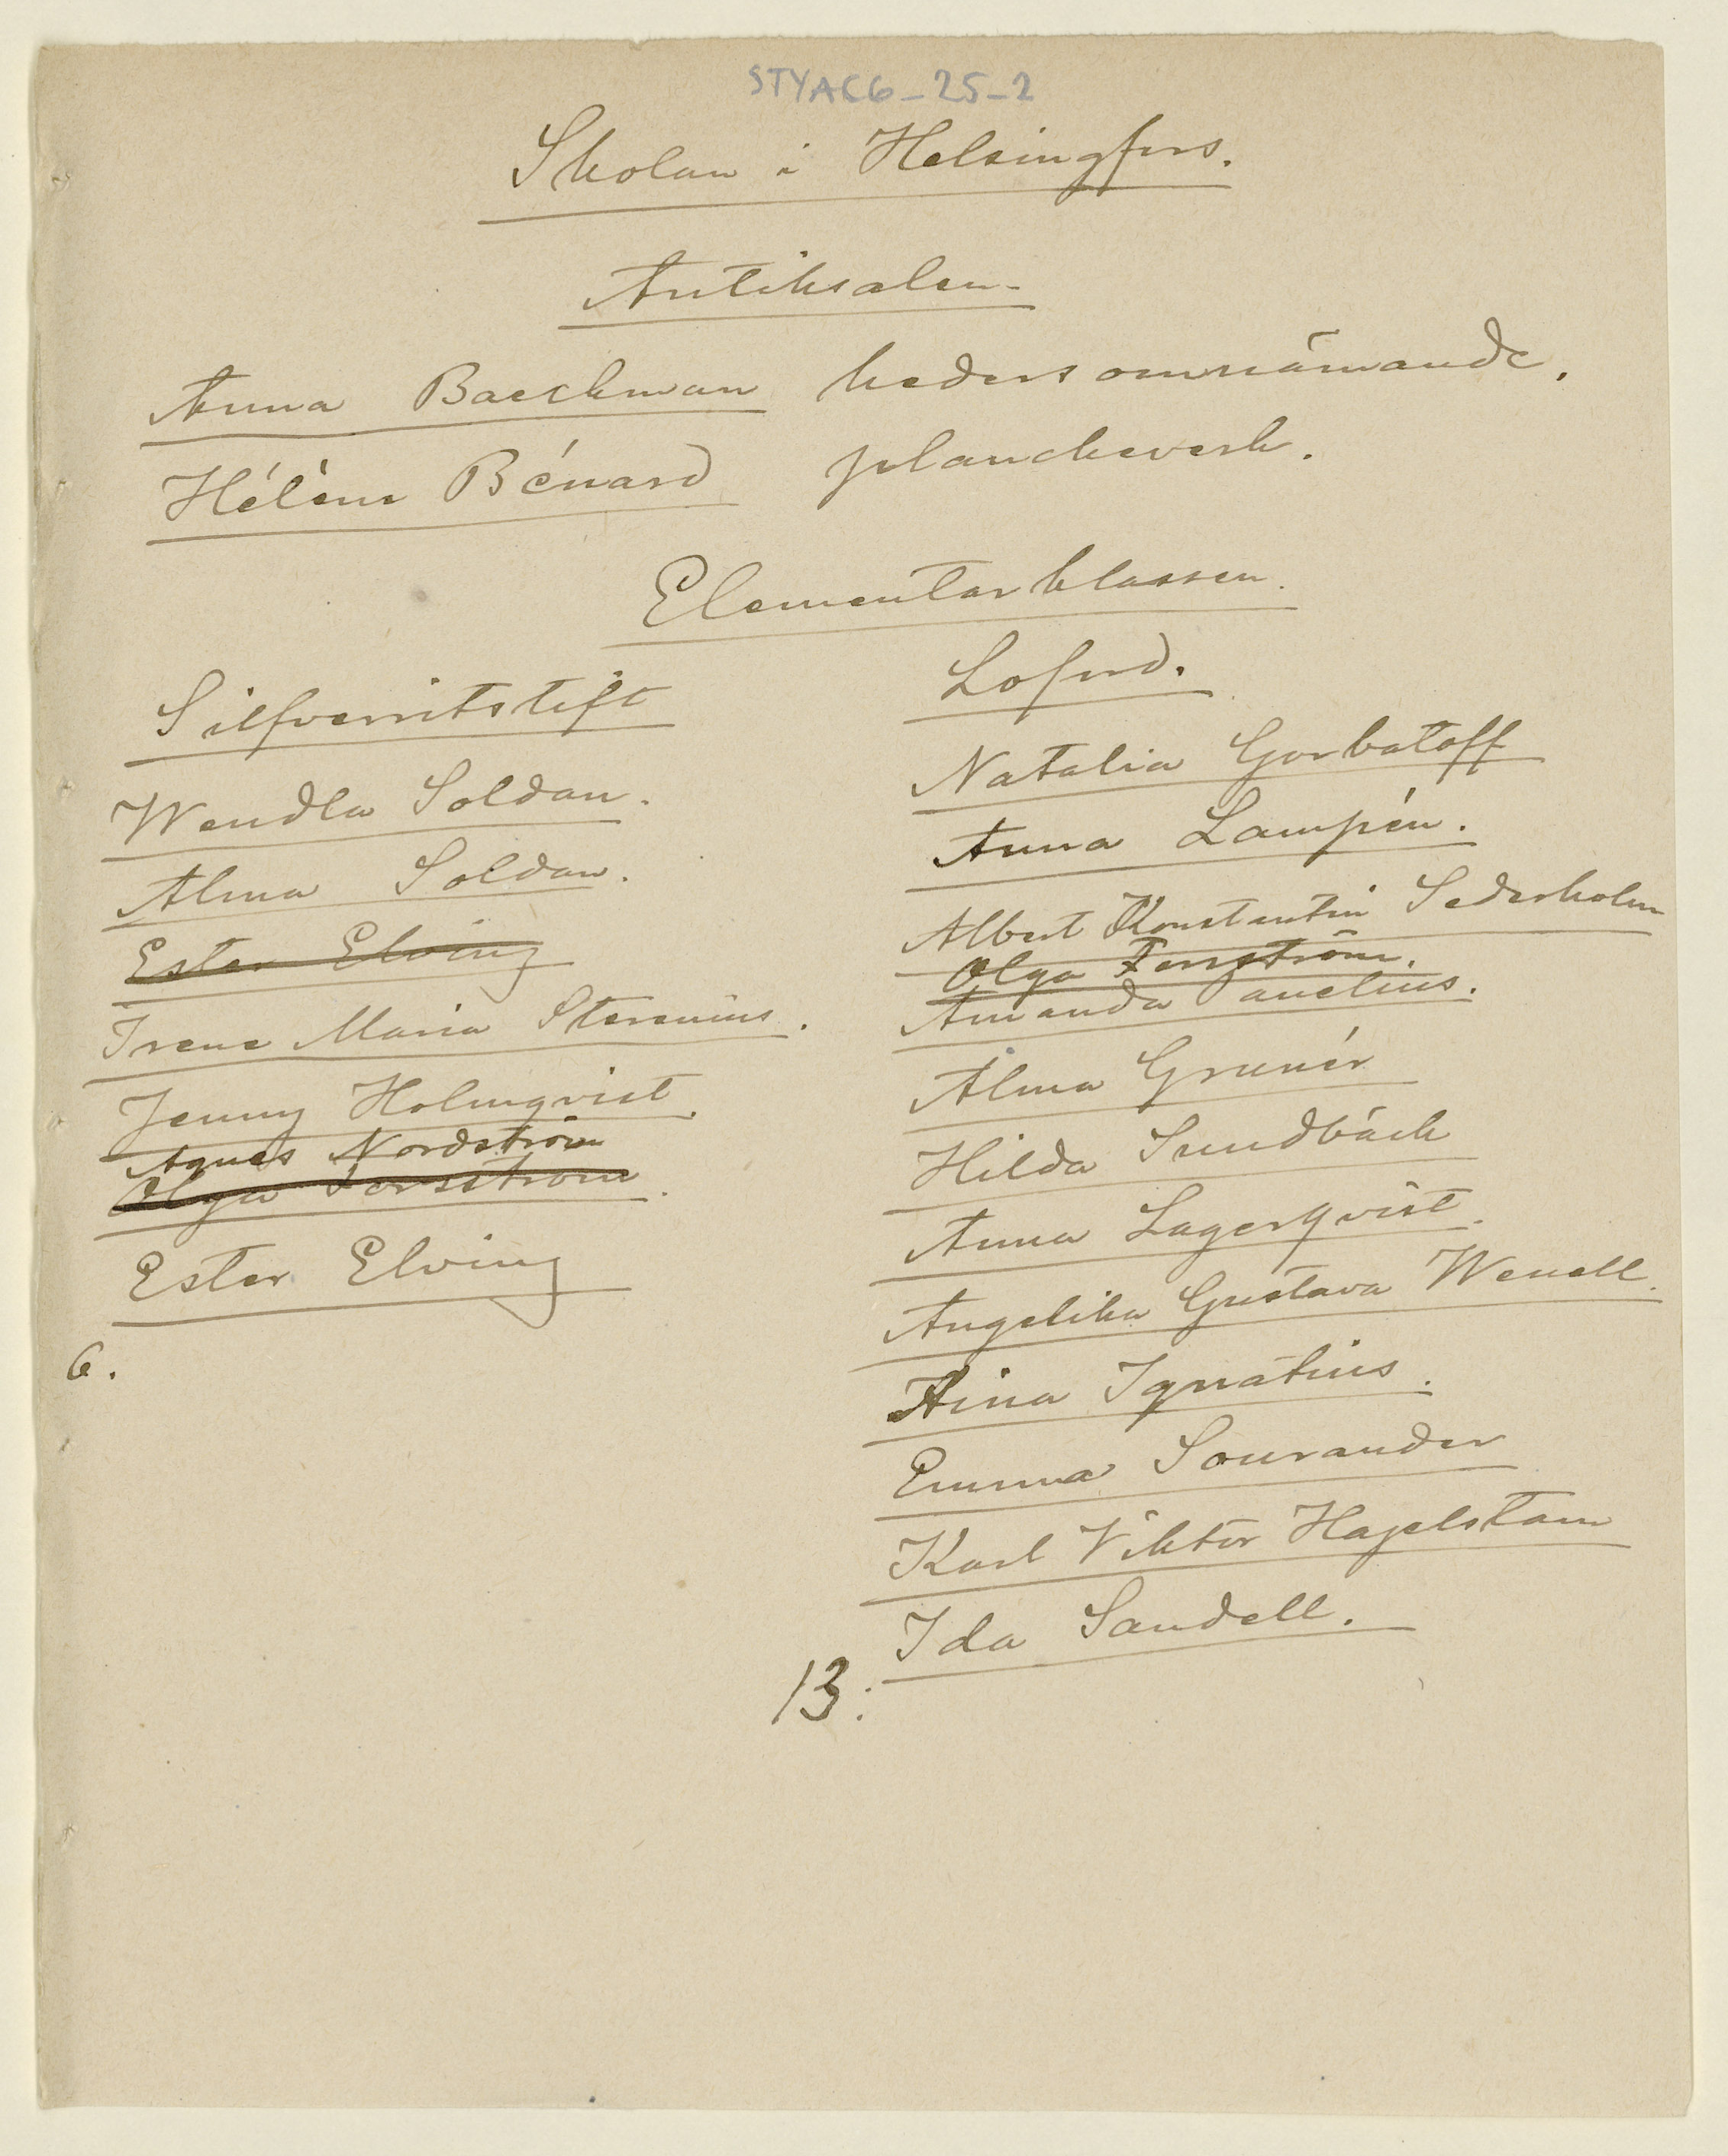 STYAC6_25_2
Skolan i Helsingfors.
Antiksalen.
Anna Baeckman hedersomnämande.
Hélène Bénard planchverk.
Elementarklassen.
Silfverritstift
Wendla Soldan.
Alma Soldan.
Ester Elving
Irene Maria Sterenius.
Jenny Holmqvist.
Agnes Nordström
Olga Forsström.
Ester Elving
6.
Loford.
Natalia Gorbatoff
Anna Lampén.
Albert Konstantin Sederholm
Olga Forsström.
Amanda Vanelius.
Alma Grunér
Hilda Sundbäck
Anna Lagerqvist.
Angelika Gustava Wenell.
Aina Ignatius.
Emma Sourander
Karl Viktor Hagelstam
Ida Sandell.
13.